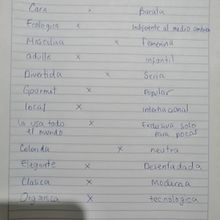 Cara x Barata
Ecologica x Indiferente al medio ambiente
Masculina x Femenina
adulta x infantil
Divertida x Seria
Gourmet x Popular
local x internacional
la usa todo x Exclusiva solo
el mundo para pocas
Colorida x neutra
Elegante x Desenfadada
Clasica x Moderna
Organica x tecnologica